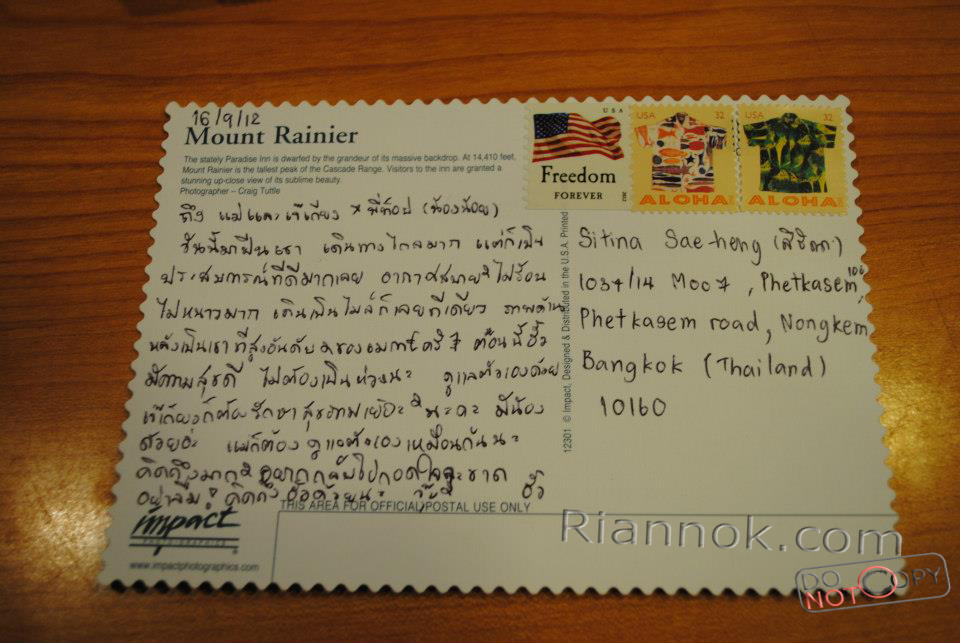 16/9/12
Mount Rainier
The stately Paradise Inn is dwarfed by the grandeur of its massive backdrop. At 14,410 feet,
Mount Rainier is the tallest peak of the Cascade Range. Visitors to the inn are granted a
stunning up-close view of its sublime beauty.
Photographer – Craig Tuttle
ถึง แม่และเจ๊เกียง × พี่ก้อย (น้องน้อย)
วันนี้มาปีนเขา เดินทางไกลมาก แต่ก็เป็น
ประสบการณ์ที่ดีมากเลย อากาศสบายๆ ไม่ร้อน
ไม่หนาวมาก เดินเป็นไมล์ก็เลยทีเดียว ภาพด้าน
หลังเป็นเขาที่สูงอันดับ ของอเมริกา ตอนนี้
มีความสุขดี ไม่ต้องเป็นห่วงนะ ดูแลตัวเองด้วย
ก็ต้องรักษาสุขภาพเยอะๆ นะคะ มีน้อง
ด้วย แม่ก็ต้องดูแลตัวเองเหมือนกันนะ
คิดถึงมากๆ อยากกลับไปกอดใจจะขาด
อย่าลืม คิดถึง ด้วยนะ
USA
Freedom
FOREVER
2012
USA 32
ALOHA
USA 32
ALOHA
12301 © Impact, Designed & Distributed in the U.S.A. Printed
Sitina Sae-heng
1034/14 Moo 7, Phetkasem 106,
Phetkasem road, Nongkem
Bangkok (Thailand)
10160
THIS AREA FOR OFFICIAL POSTAL USE ONLY
impact
PHOTOGRAPHICS
www.impactphotographics.com
Riannok.com
DO NOT COPY